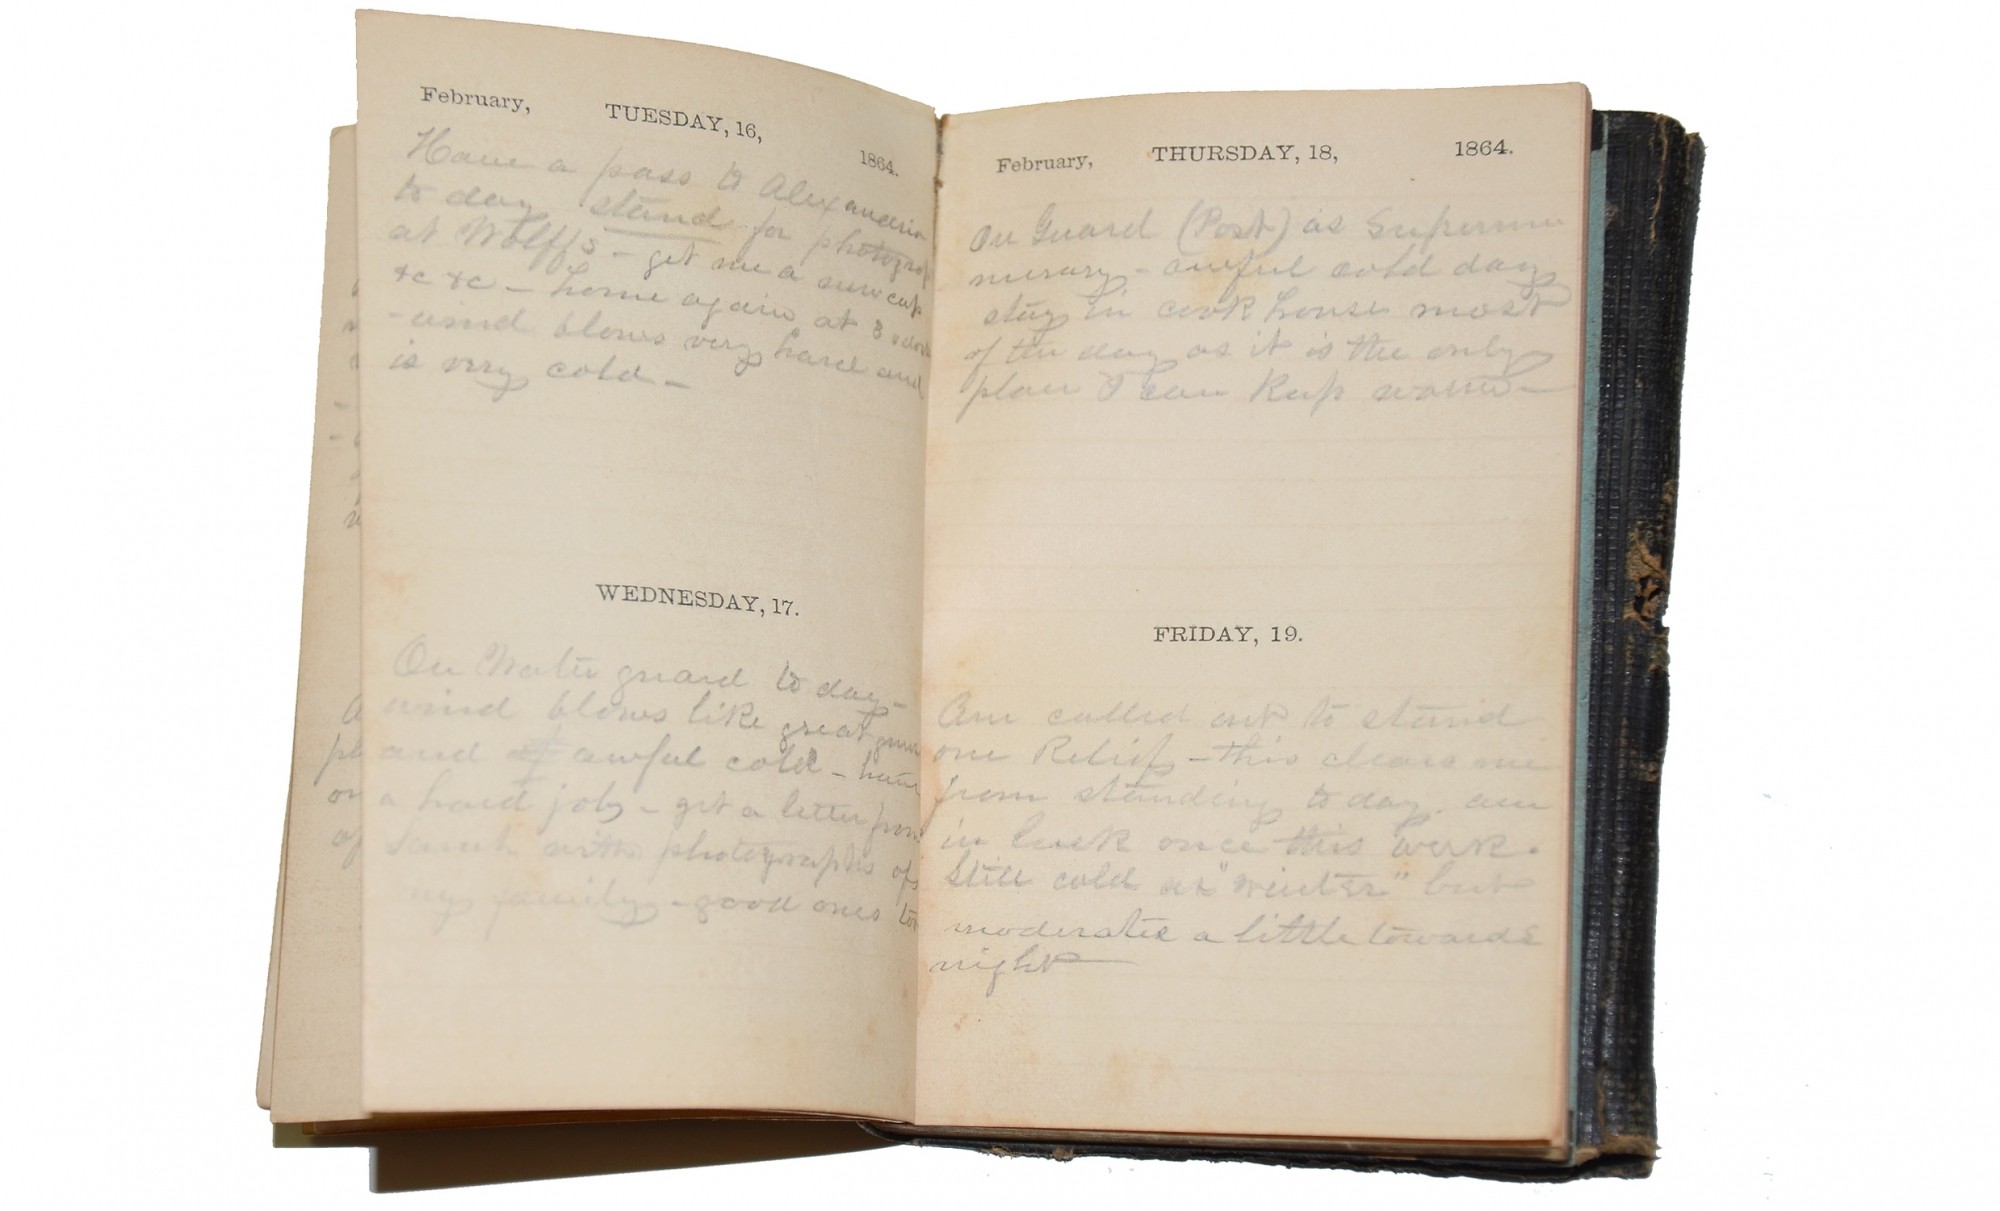 February, TUESDAY, 16, 1864.
Have a pass to Alexandria
to day stand for photograph
at Wolffs - get me a new cap
&c &c - home again at 3 oclock
- wind blows very hard and
is very cold -
WEDNESDAY, 17.
On Water guard to day -
wind blows like great guns
and awful cold - have
a hard job - get a letter from
Sarah with photographs of
my family - good ones too
February, THURSDAY, 18, 1864.
On Guard (Post) as Supernu
merary - awful cold day
stay in cook house most
of the day as it is the only
place I can keep warm -
FRIDAY, 19.
Am called out to stand
one Relief - this clears me
from standing to day. am
in luck once this week.
Still cold as "winter" but
moderates a little towards
night